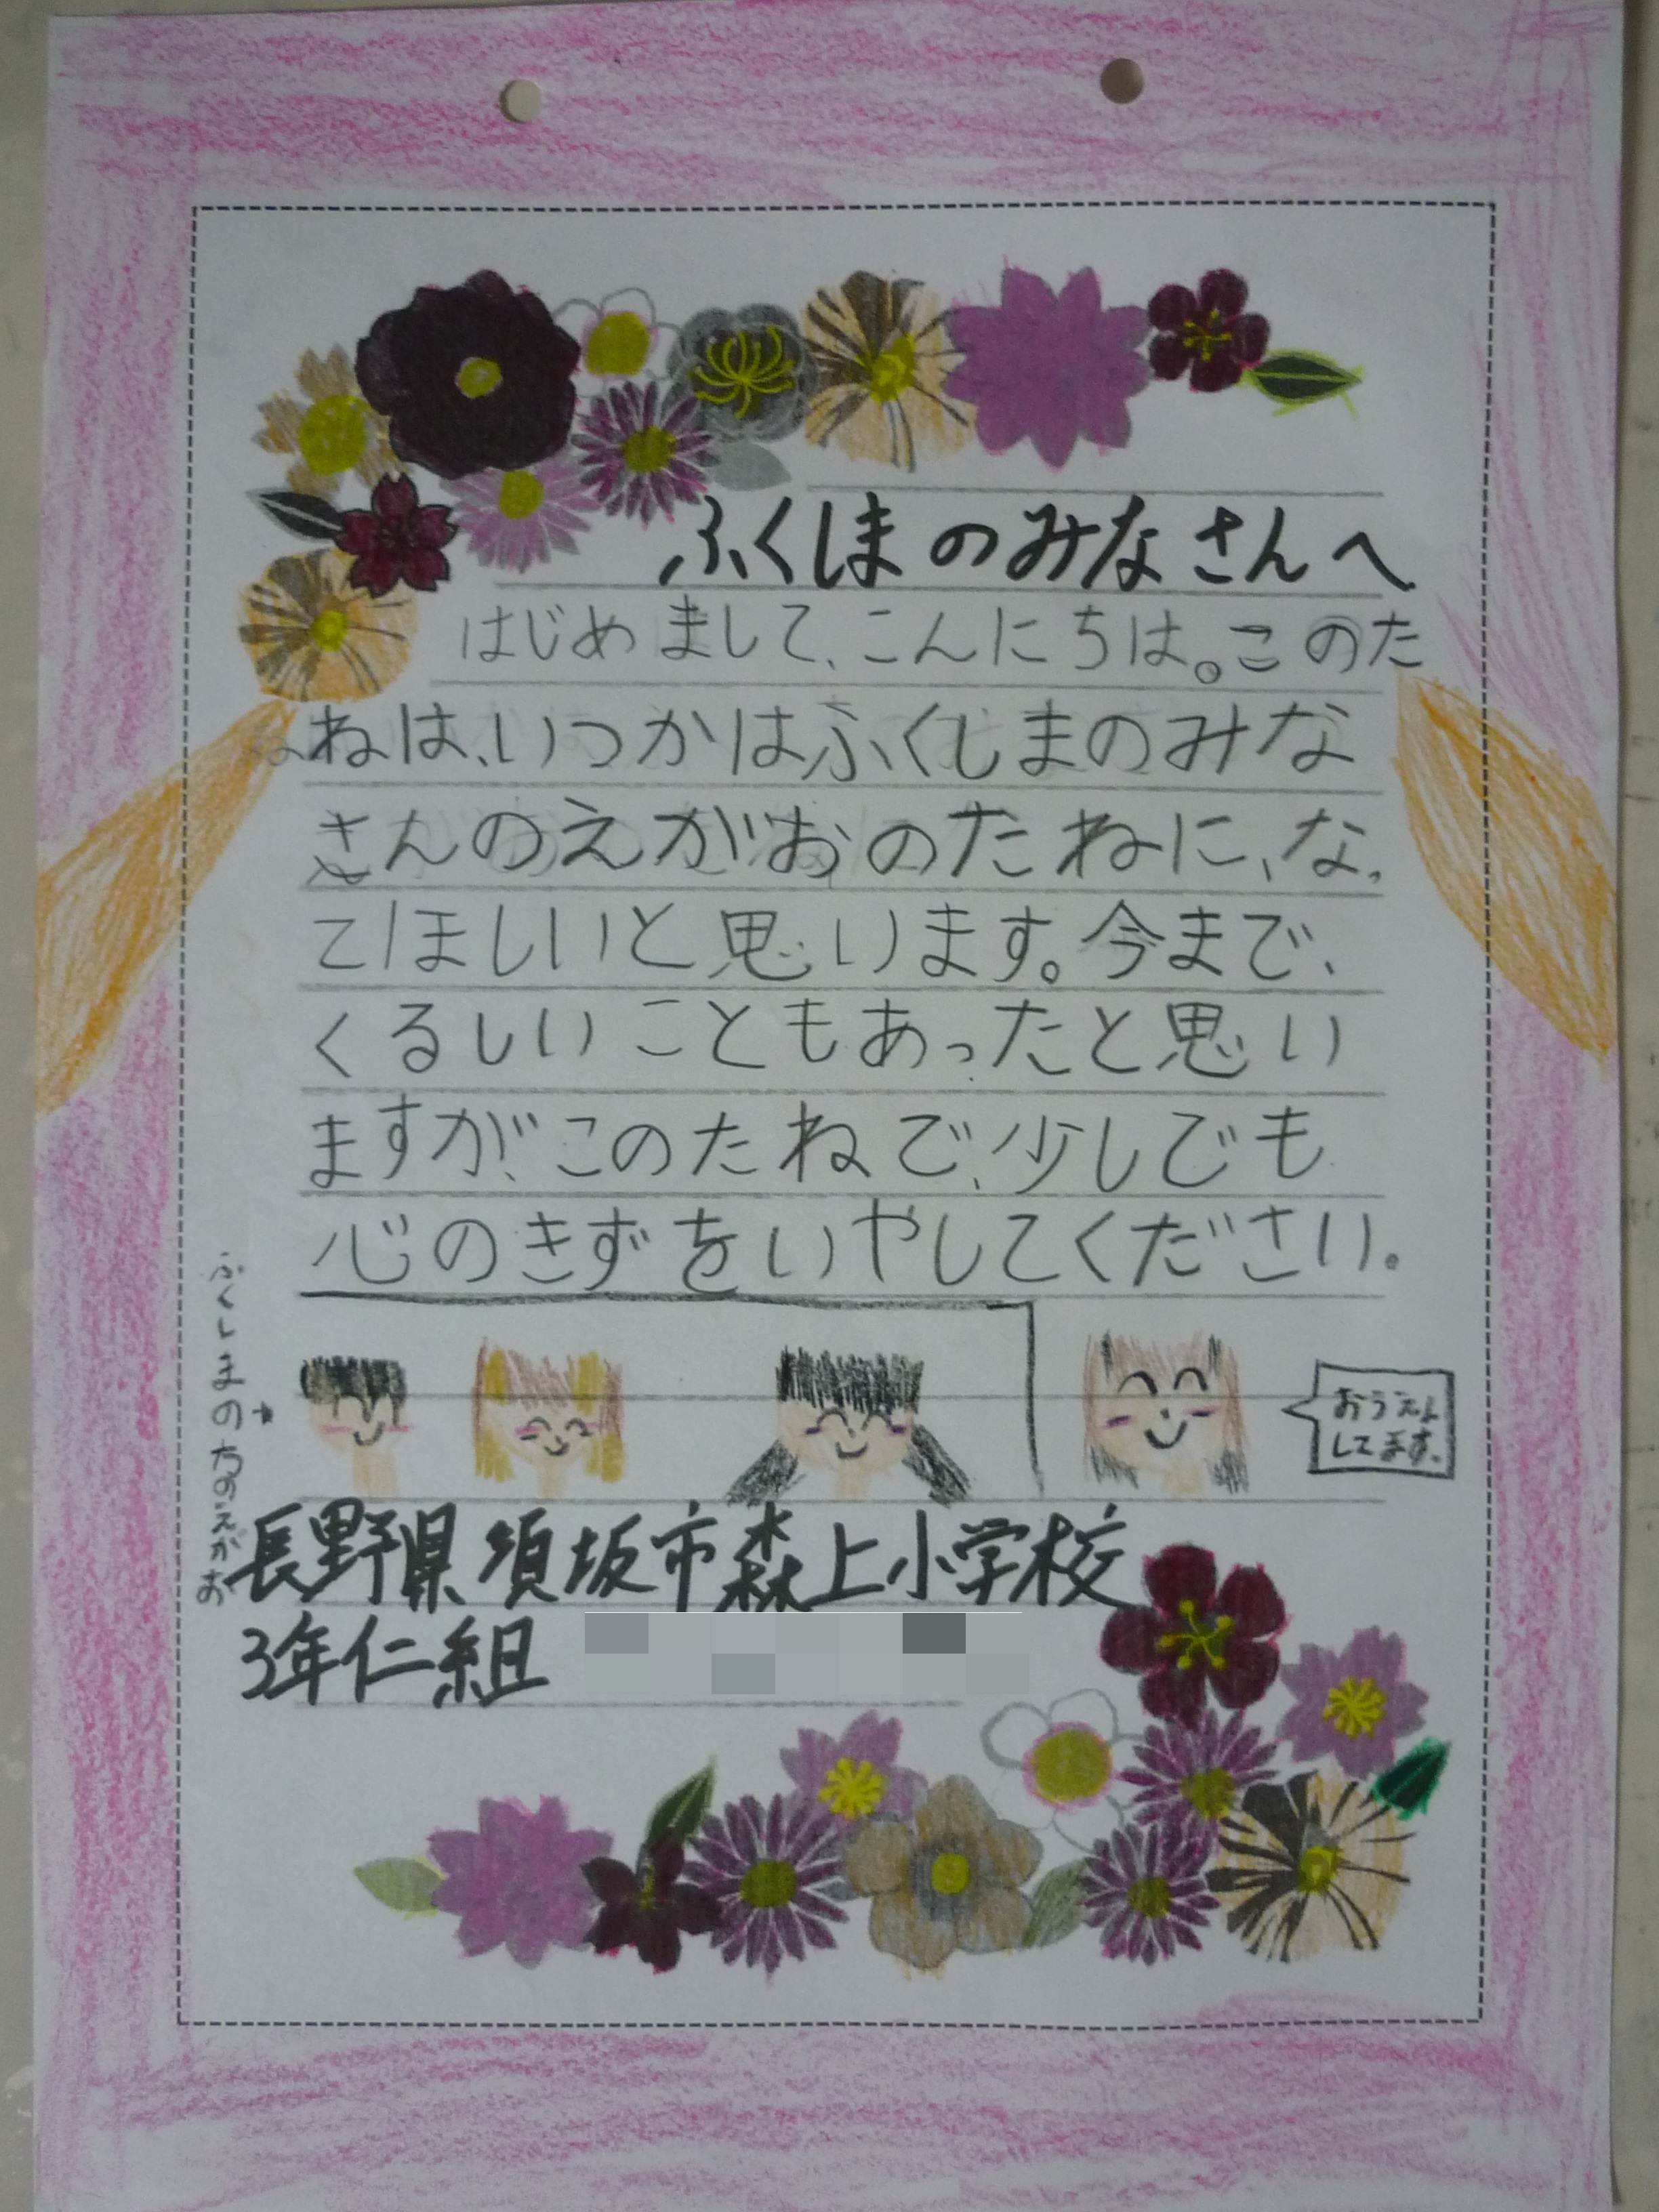 ふくしまのみなさんへ
はじめまして、こんにちは。このた
ねは、いつかはふくしまのみな
さんのえがおのたねに、なっ
てほしいと思います。今まで、
くるしいこともあったと思い
ますが、このたねで、少しでも
心のきずをいやしてください。
おうえん
してます。
長野県須坂市森上小学校
3年仁組